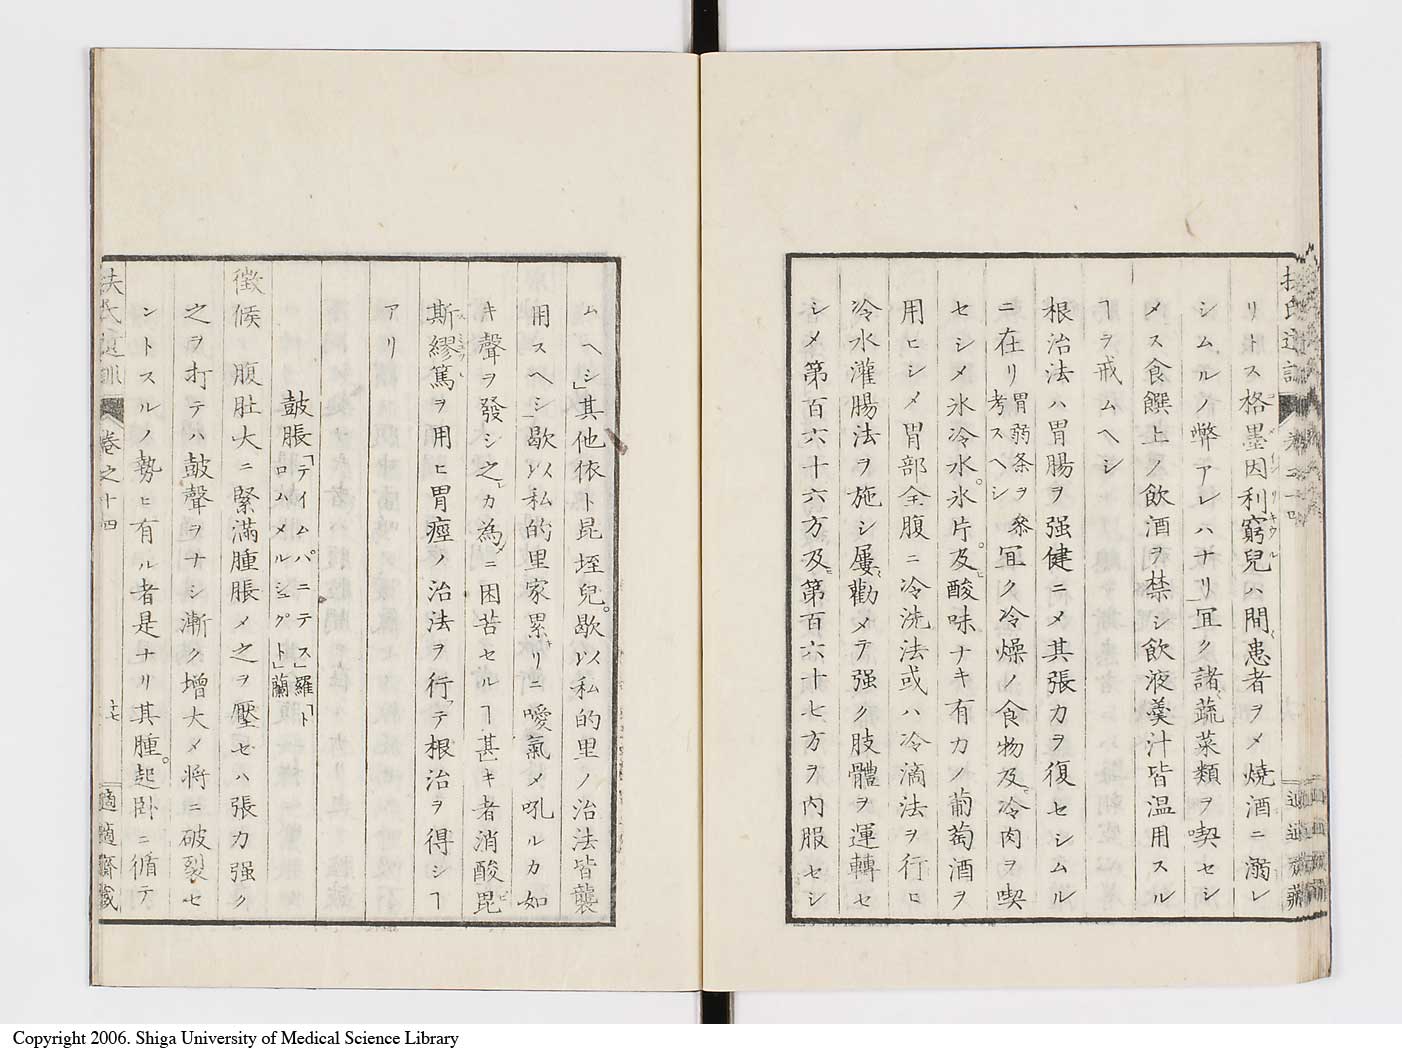 リトス格墨因利窮兒ハ間患者ヲメ燒酒ニ溺レ
シムルノ弊アレハナリ宜ク諸蔬菜類ヲ喫セシ
メス食饌上ノ飲酒ヲ禁シ飲液羹汁皆温用スル
ヿヲ戒ムヘシ
根治法ハ胃腸ヲ强健ニメ其張力ヲ復セシムル
ニ在リ胃弱条ヲ参考スヘシ宜ク冷燥ノ食物及冷肉ヲ喫
セシメ氷冷水氷片及酸味ナキ有力ノ葡萄酒ヲ
用ヒシメ胃部全腹ニ冷洗法或ハ冷滴法ヲ行ヒ
冷水灌腸法ヲ施シ屢勸メテ强ク肢體ヲ運轉セ
シメ第百六十六方及第百六十七方ヲ内服セシ
ムヘシ」其他依卜昆垤兒歇以私的里ノ治法皆襲
用スヘシ歇以私的里家累リニ噯氣メ吼ルカ如
キ聲ヲ發シ之カ為ニ困苦セルヿ甚キ者消酸毘
斯繆篤ヲ用ヒ胃痙ノ治法ヲ行テ根治ヲ得シヿ
アリ
鼓脹「テイムパニテス」羅「トロムメルシュグト」蘭
徴候 腹肚大ニ緊滿腫脹メ之ヲ壓セハ張力强ク
之ヲ打テハ鼓聲ヲナシ漸ク增大メ將ニ破裂セ
ントスルノ勢ヒ有ル者是ナリ其腫起臥ニ循テ
扶氏遺訓 卷之十四 十七 適適齋藏